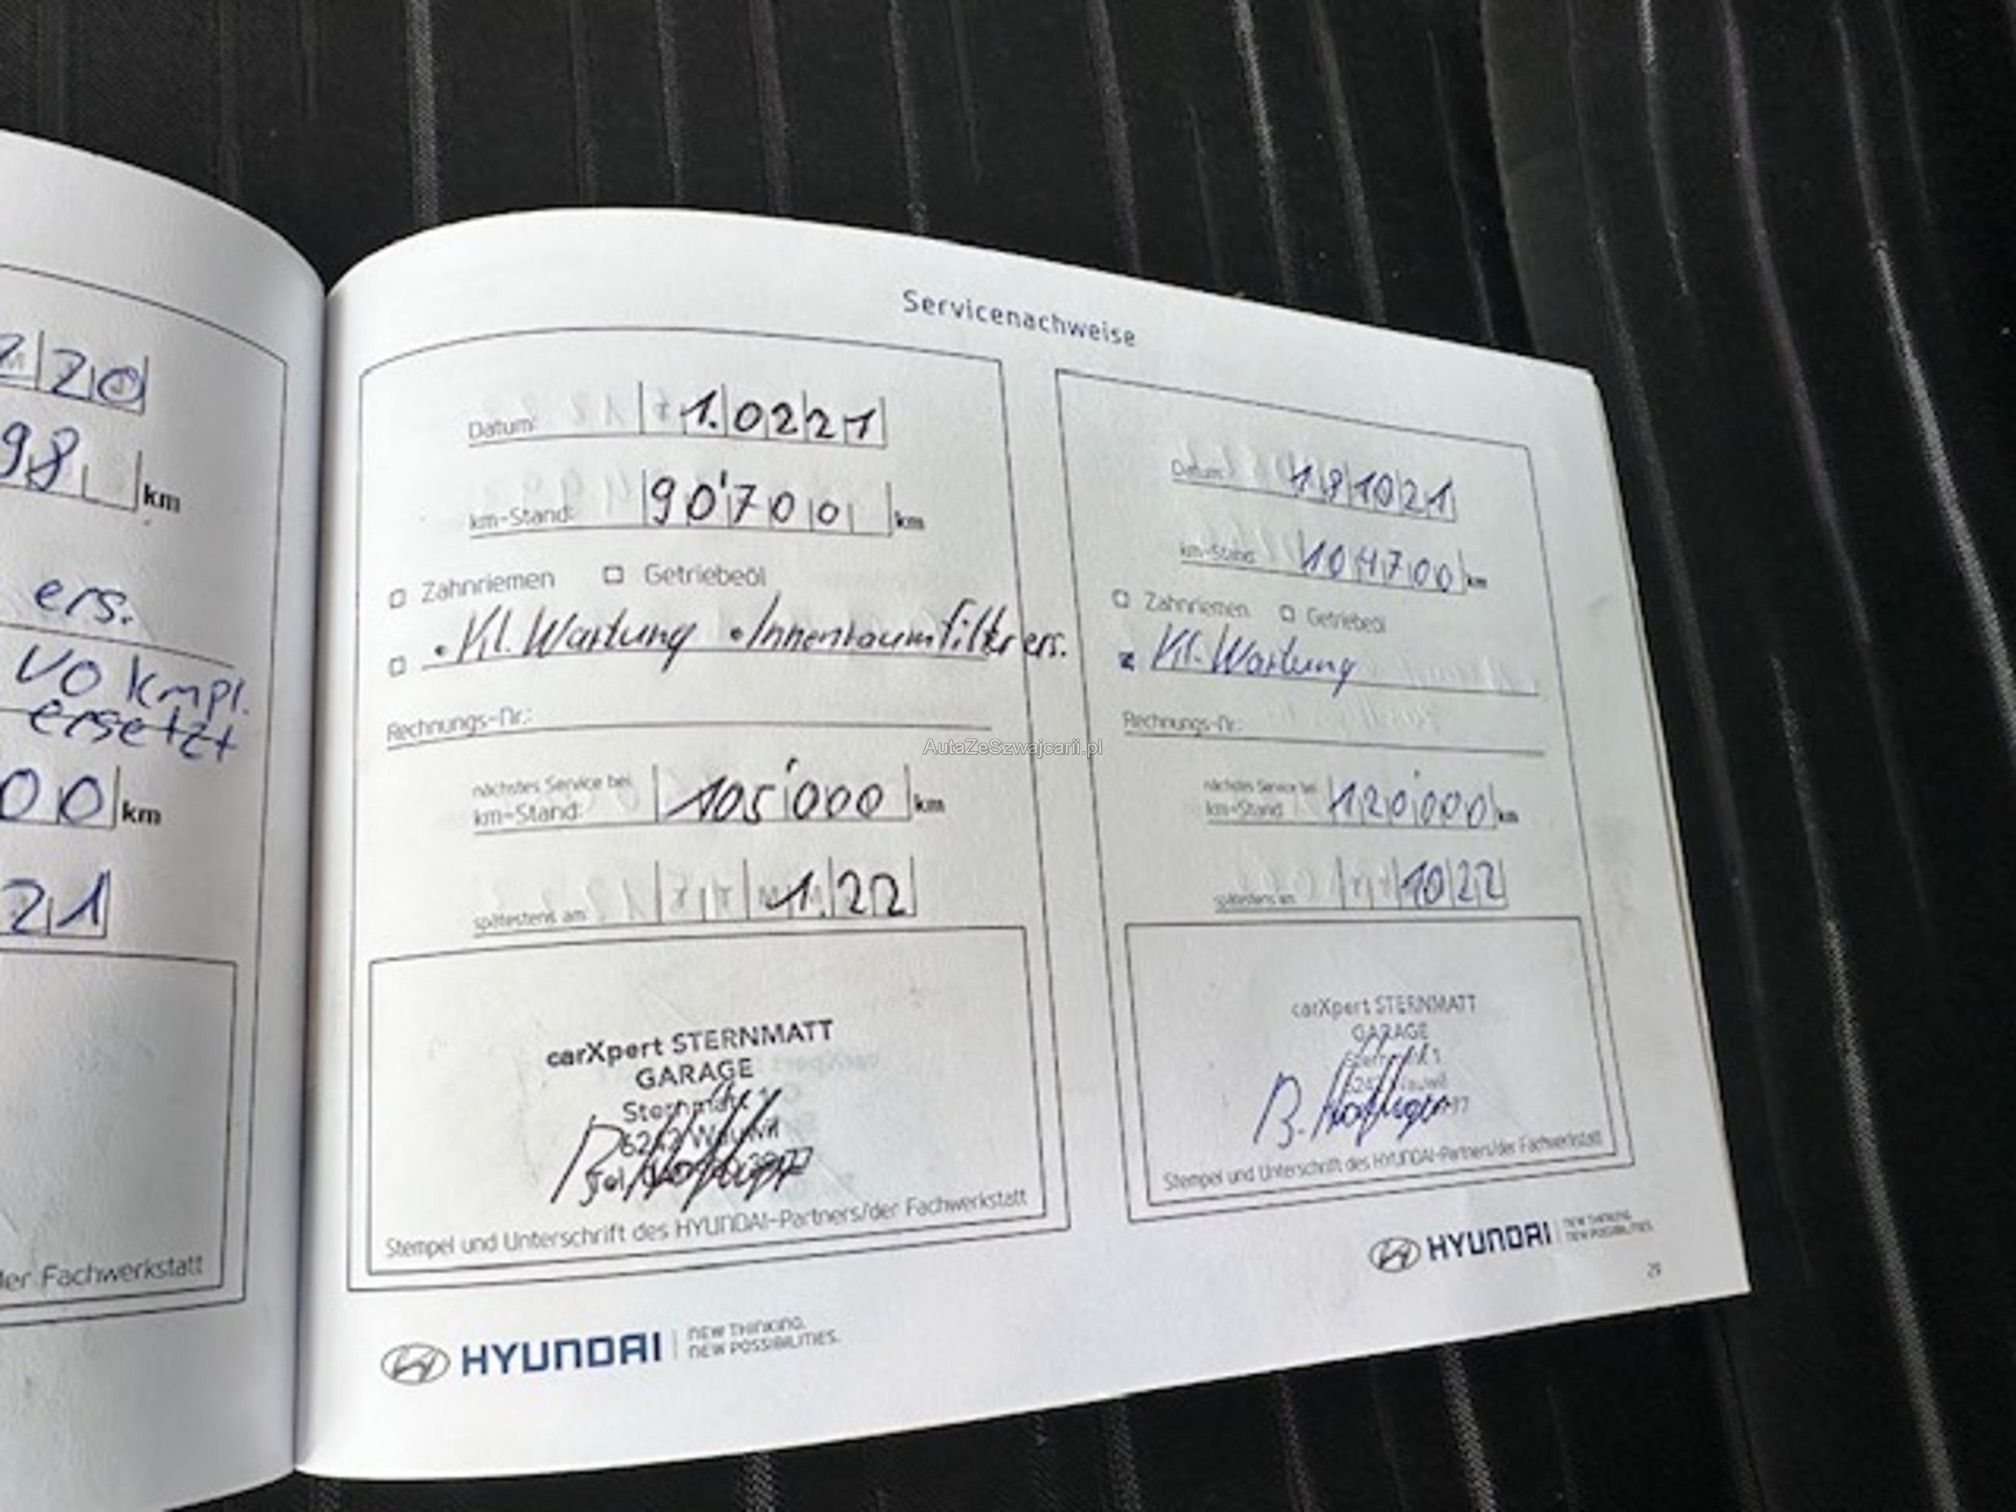 220
98 km
ers.
VO kmpl.
ersetzt
00 km
21
der Fachwerkstatt
Servicenachweise
Datum: 1.0221
km-Stand: 90'700 km
Zahnriemen Getriebeöl
• Kl. Wartung • Innenraumfilter ers.
Rechnungs-Nr.:
nächstes Service bei
km-Stand: 105'000 km
spätestens am 1.22
carXpert STERNMATT
GARAGE
Sternmatt 1
6242 Wauwil
Tel.
Stempel und Unterschrift des HYUNDAI-Partners/der Fachwerkstatt
HYUNDAI NEW THINKING.
NEW POSSIBILITIES.
Datum: 181021
km-Stand: 104700 km
Zahnriemen Getriebeöl
Kl. Wartung
Rechnungs-Nr.:
nächstes Service bei
km-Stand: 120'000 km
spätestens am 1022
carXpert STERNMATT
GARAGE
Sternmatt 1
6242 Wauwil
Stempel und Unterschrift des HYUNDAI-Partners/der Fachwerkstatt
HYUNDAI NEW THINKING.
NEW POSSIBILITIES.
29
AutaZeSzwajcarii.pl